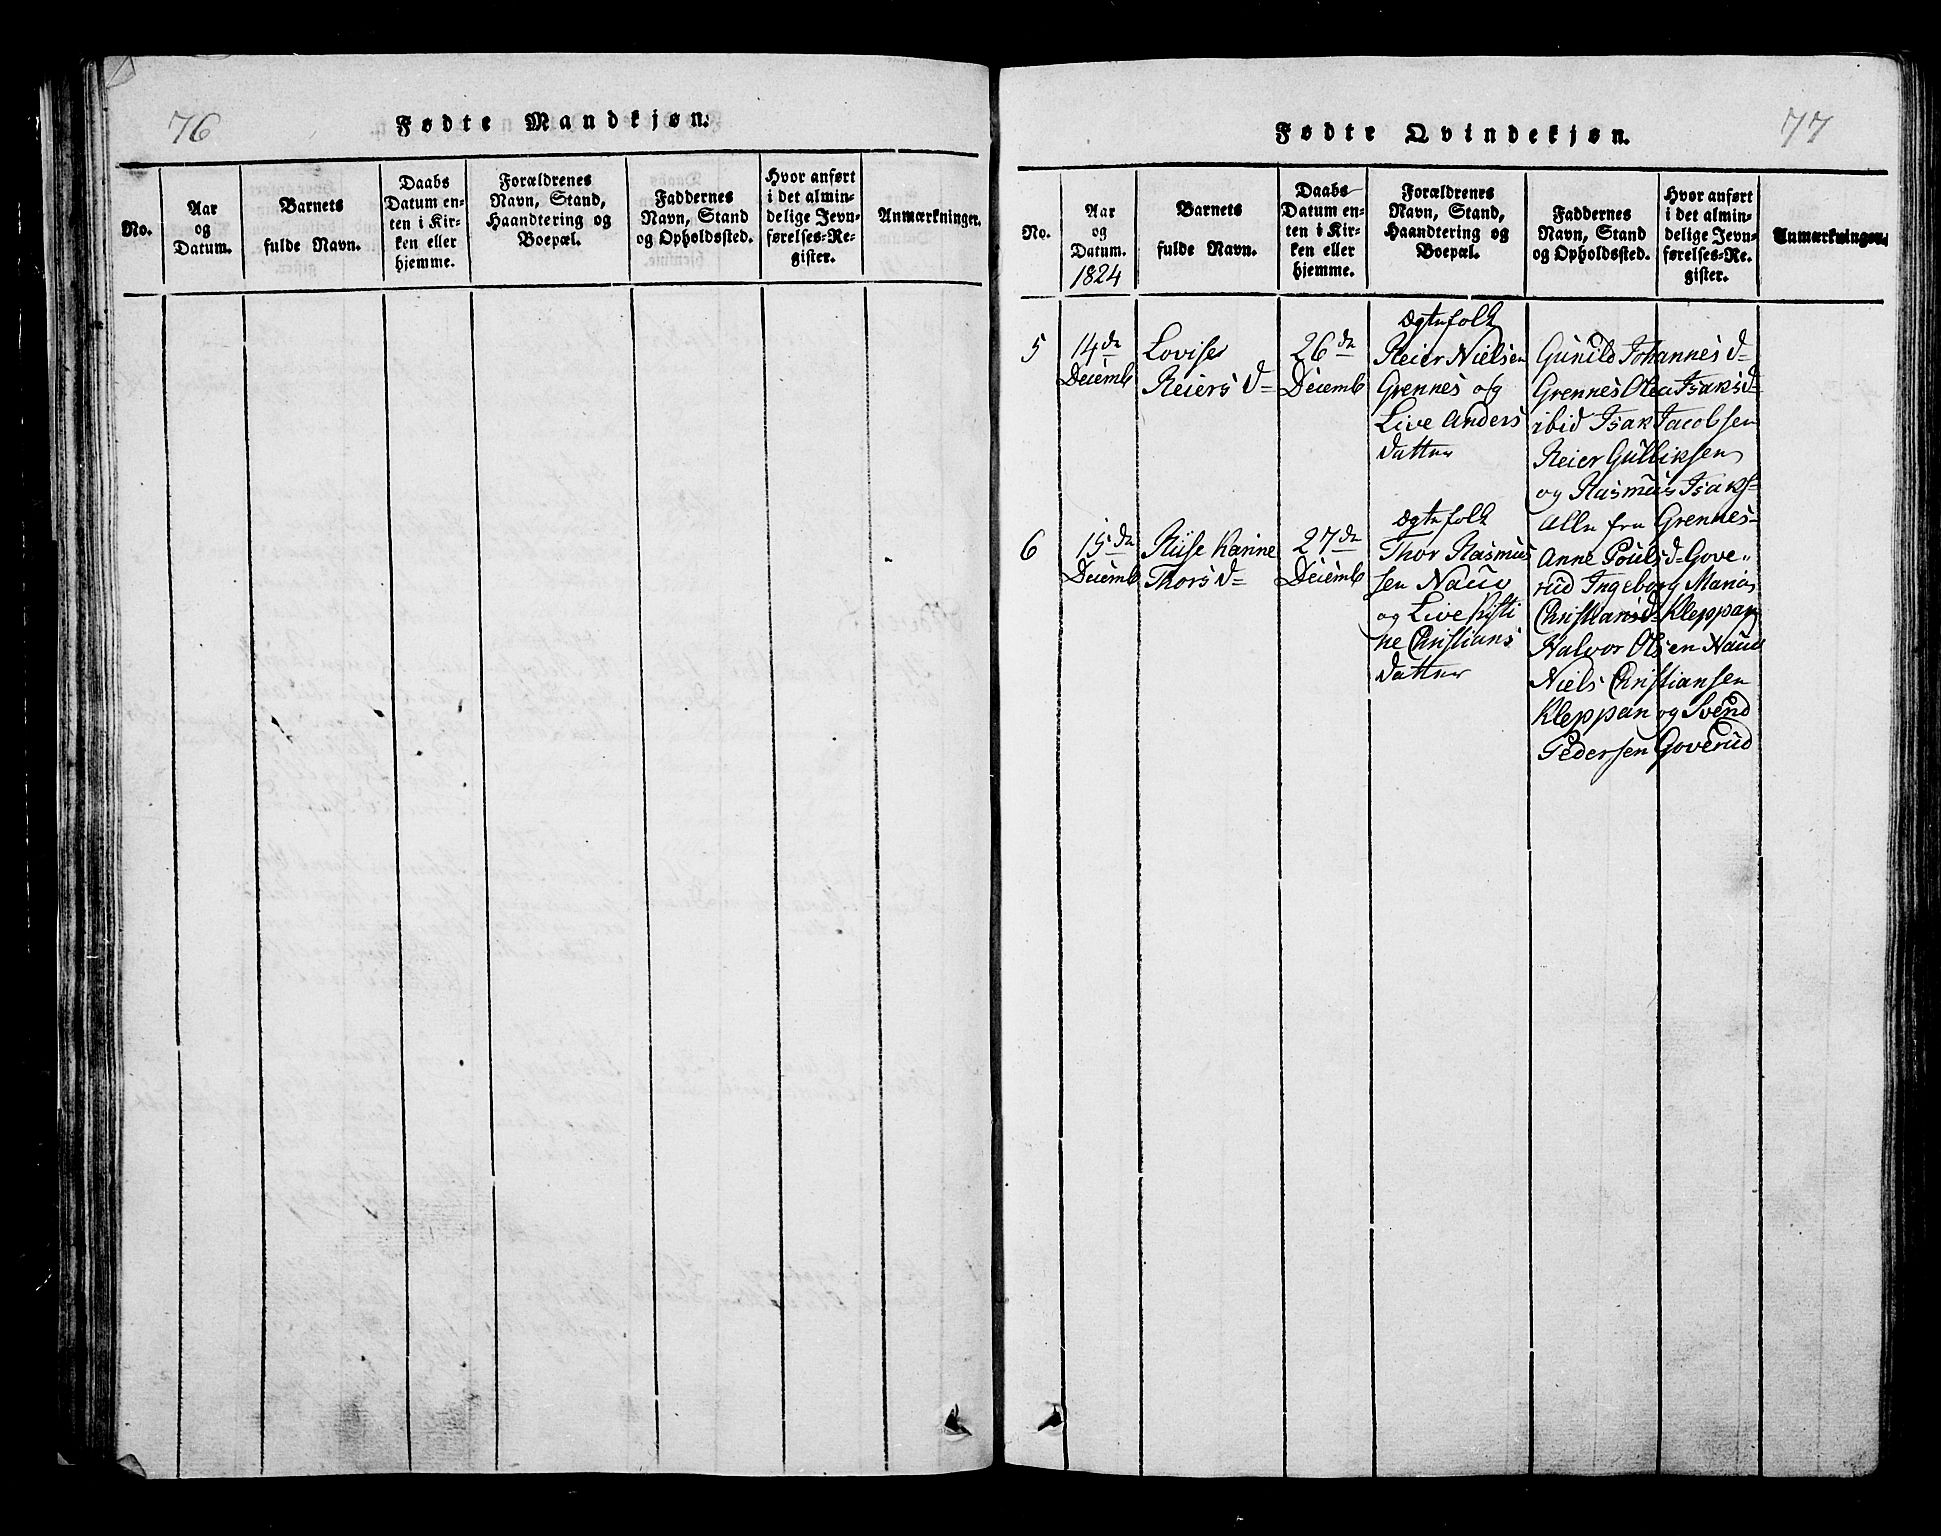 76
Fødte Mandkjøn.
No.
Aar
og
Datum.
Barnets
fulde Navn.
Daabs
Datum en-
ten i Kir-
ken eller
hjemme.
Forældrenes
Navn, Stand,
Haandtering og
Boepæl.
Faddernes
Navn, Stand
og Opholdssted.
Hvor anført
i det almin-
delige Jevn-
førelses-Re-
gister.
Anmærkninger.
77
Fødte Qvindekjøn.
No.
Aar
og
Datum.
1824
Barnets
fulde Navn.
Daabs-
Datum en-
ten i Kir-
ken eller
hjemme.
Forældrenes
Navn, Stand,
Haandtering og
Boepæl.
Faddernes
Navn, Stand
og Opholdssted.
Hvor anført
i det almin-
delige Jevn-
førelses-Re-
gister.
Anmærkninger.
5
14de
Decemb
Lovise
Reiers d=
26de
Decemb
Ægtefolk
Reier Nielsen
Grennes og
Live Anders
datter
Gunild Johannes d=
Grennes Olea Isaks d=
ibid Isak Jacobsen
Reier Gulliksen
og Rasmus Isaks=
alle fra Grennes
6
15de
Decemb
Riise Karine
Thors d=
27de
Decemb
Ægtefolk
Thor Rasmus
sen Naue
og Live Kisti
ne Christians
datter
Anne Pouls d= Gove"
rud Ingeborg Maria
Christians d= Kleppan
Halvor Olsen Naue
Niels Christiansen
Kleppan og Svend
Pedersen Goverud